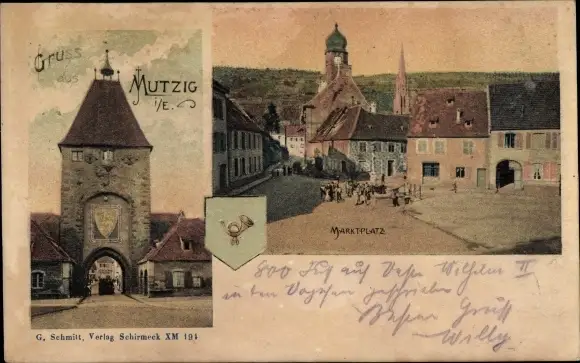 Gruss
aus
MUTZIG
i/E.
MARKTPLATZ
800 Fuß auf Veste Wilhelm II
in den Vogesen geschrieben
Besten Gruß
Willy
G. Schmitt, Verlag Schirmeck XM 191